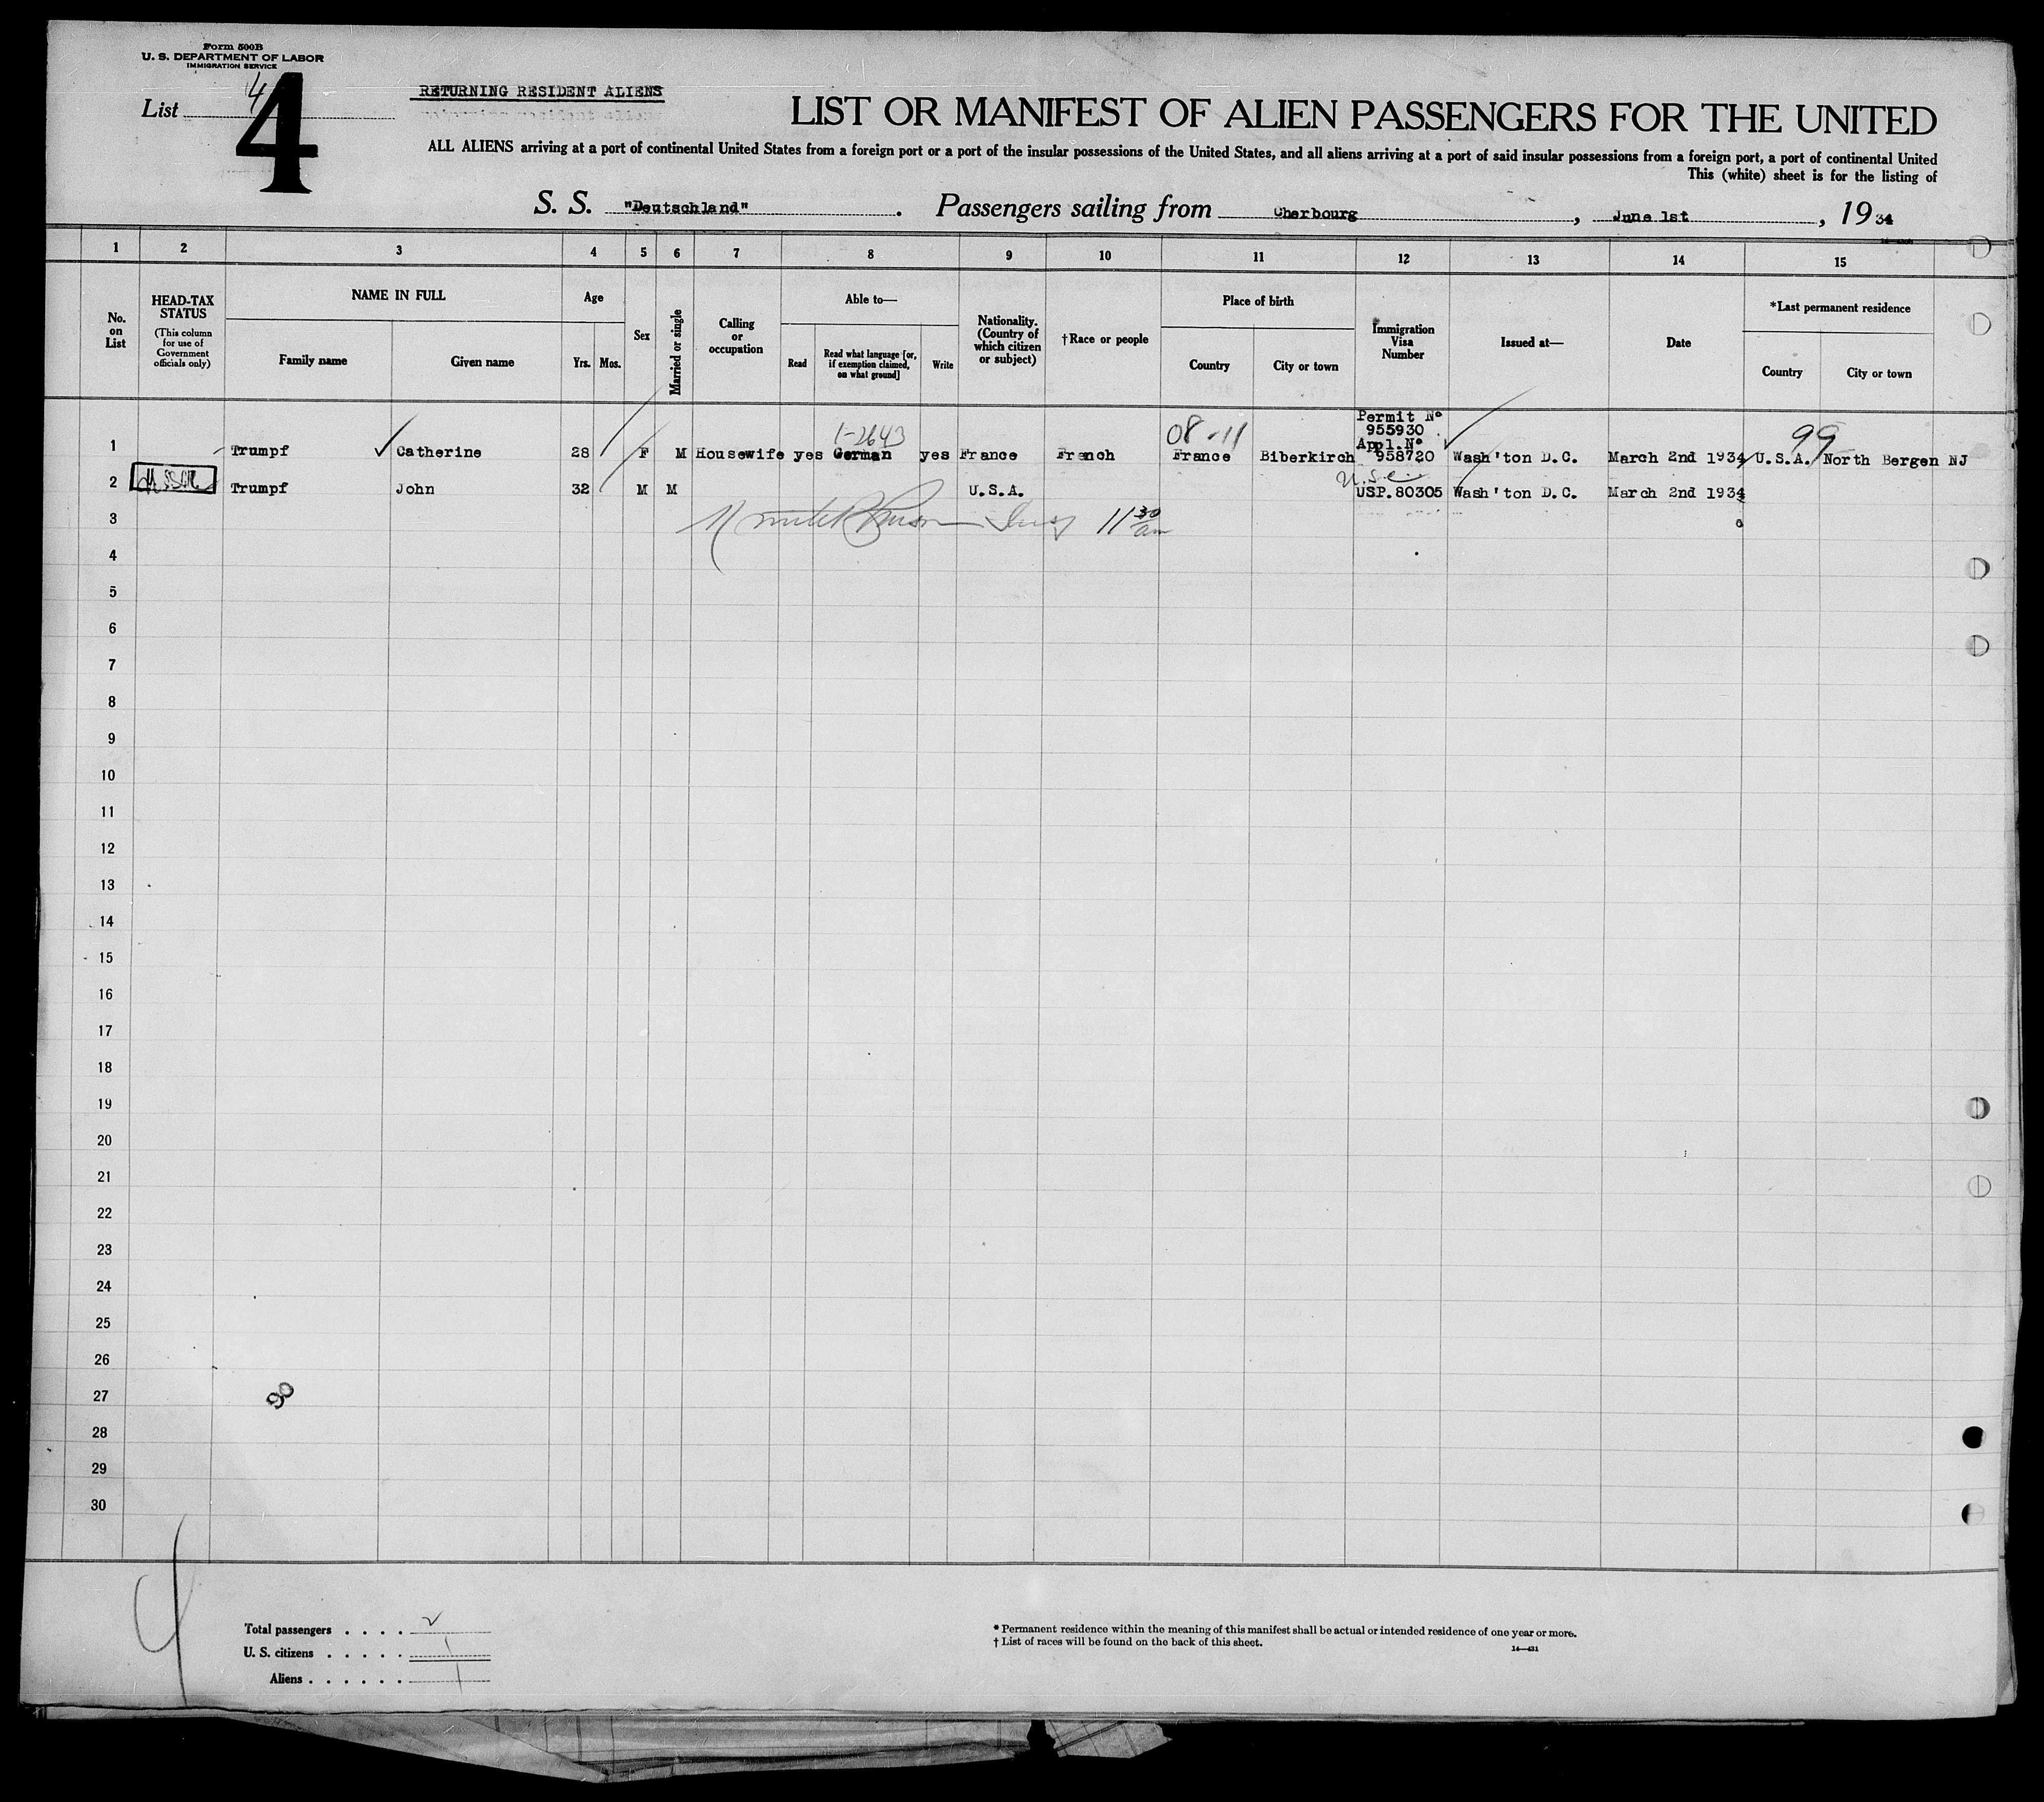 Form 500B
U. S. DEPARTMENT OF LABOR
IMMIGRATION SERVICE
List 4
4
RETURNING RESIDENT ALIENS
LIST OR MANIFEST OF ALIEN PASSENGERS FOR THE UNITED
ALL ALIENS arriving at a port of continental United States from a foreign port or a port of the insular possessions of the United States, and all aliens arriving at a port of said insular possessions from a foreign port, a port of continental United
This (white) sheet is for the listing of
S. S. "Deutschland". Passengers sailing from Cherbourg, June 1st, 1934
1 2 3 4 5 6 7 8 9 10 11 12 13 14 15
No. on List
HEAD-TAX STATUS
(This column for use of Government officials only)
NAME IN FULL
Family name
Given name
Age
Yrs.
Mos.
Sex
Married or single
Calling or occupation
Able to—
Read
Read what language [or, if exemption claimed, on what ground]
Write
Nationality. (Country of which citizen or subject)
†Race or people
Place of birth
Country
City or town
Immigration Visa Number
Issued at—
Date
*Last permanent residence
Country
City or town
Permit No
955930
Appl.No
1-2643
08-11
99
1 Trumpf Catherine 28 F M Housewife yes German yes France French France Biberkirch 958720 Wash'ton D.C. March 2nd 1934 U.S.A. North Bergen NJ
U.S.C.
2 Trumpf John 32 M M U.S.A. USP.80305 Wash'ton D.C. March 2nd 1934
3 11 30 am
4
5
6
7
8
9
10
11
12
13
14
15
16
17
18
19
20
21
22
23
24
25
26
27
90
28
29
30
4
Total passengers . . . . 2
U. S. citizens . . . . . 1
Aliens . . . . . . 1
* Permanent residence within the meaning of this manifest shall be actual or intended residence of one year or more.
† List of races will be found on the back of this sheet.
14—431